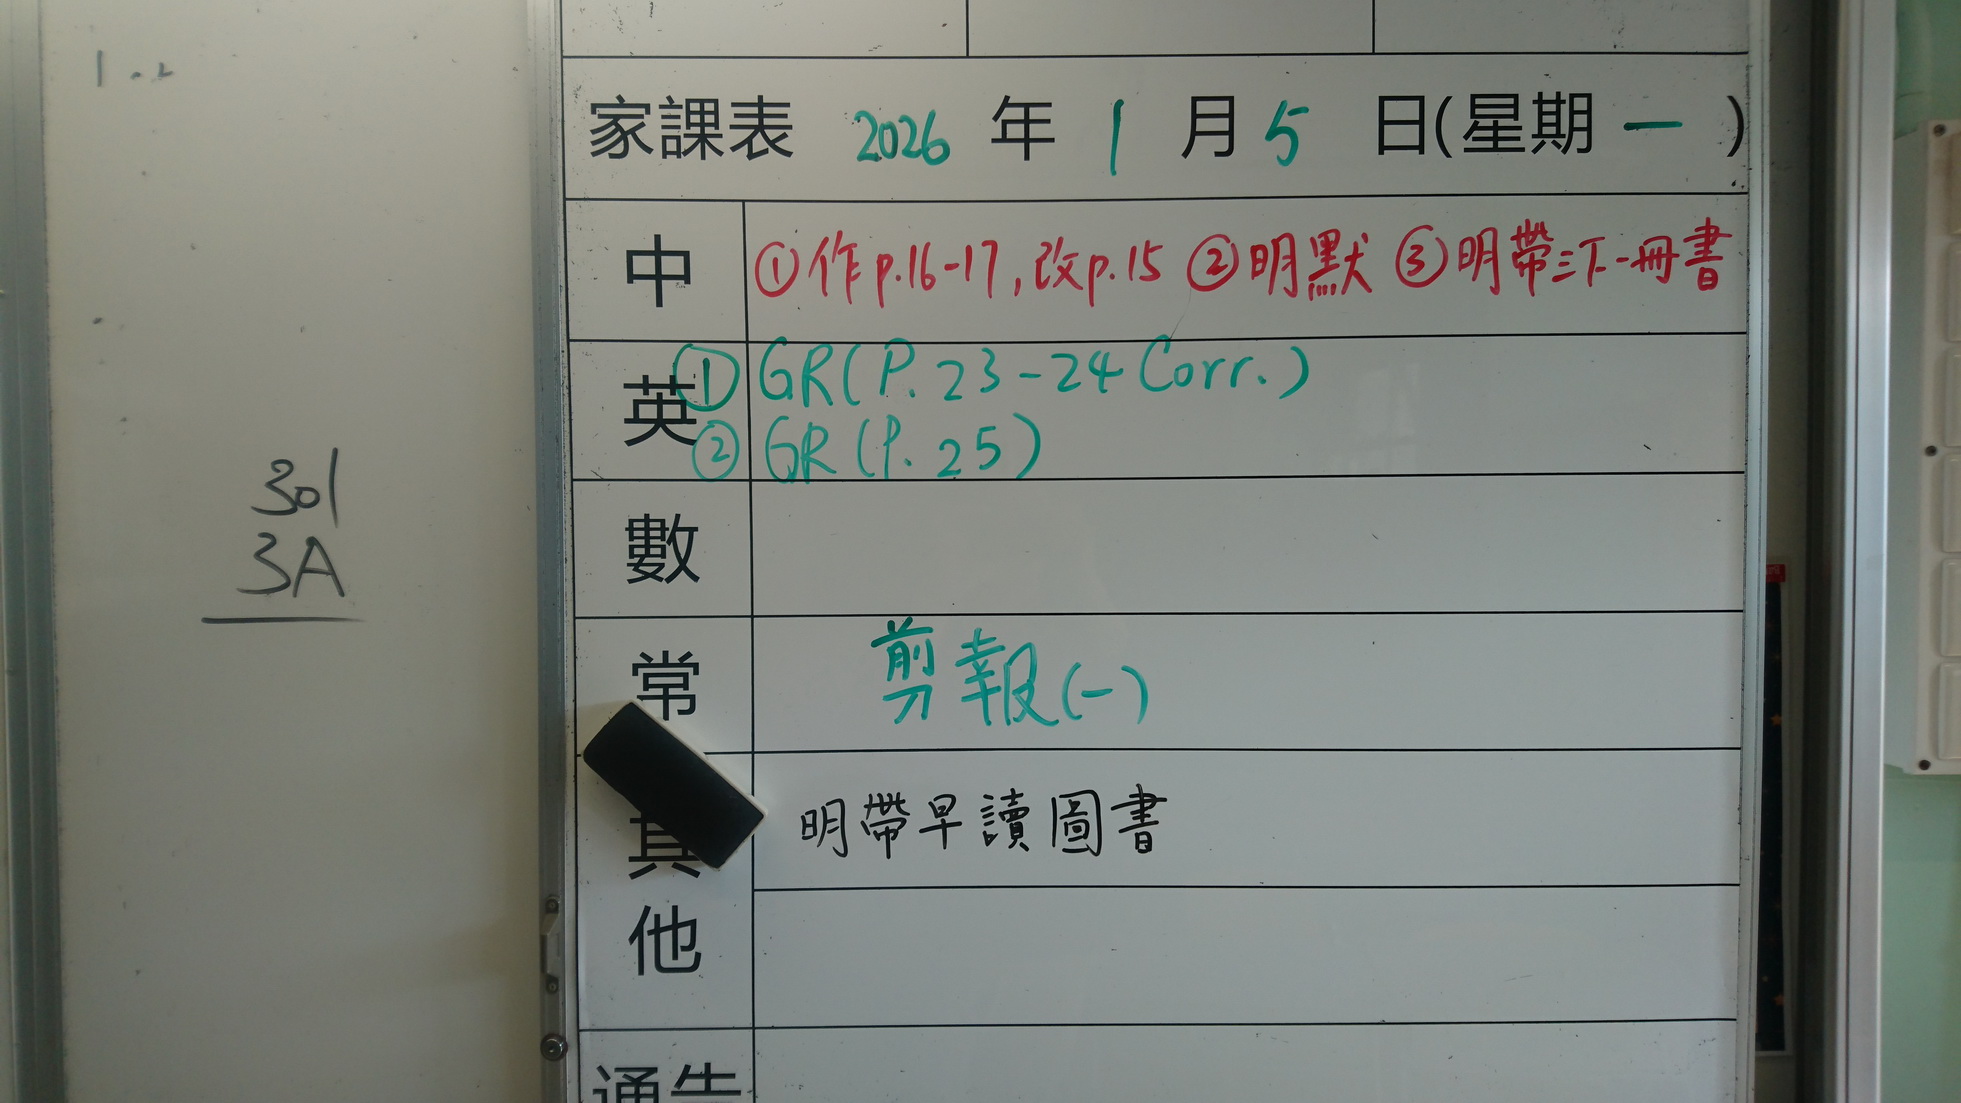 1.2
301
3A
家課表 2026 年 1 月 5 日(星期 一 )
中 ①作p.16-17,改p.15 ②明默 ③明帶三下一冊書
英 ①GR(P.23-24 Corr.)
②GR(P.25)
數
常 剪報(一)
其他 明帶早讀圖書
通告